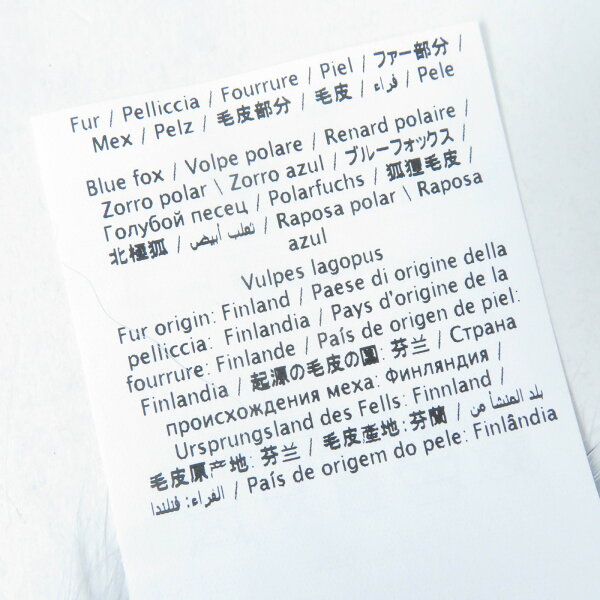 Fur / Pelliccia / Fourrure / Piel / ファー部分 /
Mex / Pelz / 毛皮部分 / 毛皮 / فراء / Pele
Blue fox / Volpe polare / Renard polaire /
Zorro polar \ Zorro azul / ブルーフォックス /
Голубой песец / Polarfuchs / 狐狸毛皮 /
北極狐 / ثعلب أبيض / Raposa polar \ Raposa
azul
Vulpes lagopus
Fur origin: Finland / Paese di origine della
pelliccia: Finlandia / Pays d'origine de la
fourrure: Finlande / País de origen de piel:
Finlandia / 起源の毛皮の國: 芬兰 / Страна
происхождения меха: Финляндия /
Ursprungsland des Fells: Finnland /
毛皮原产地: 芬兰 / 毛皮產地: 芬蘭 / بلد المنشأ من
الفراء: فنلندا / País de origem do pele: Finlândia